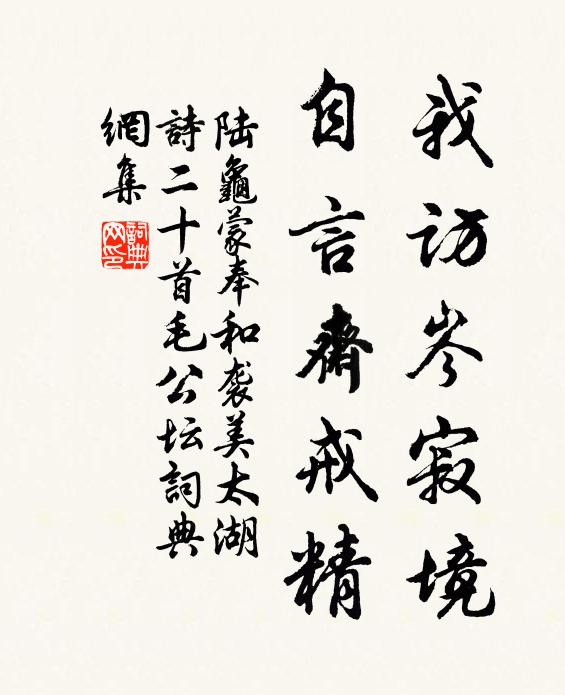 我访岑寂境
自言斋戒精
陆龜蒙奉和袭美太湖
詩二十首毛公坛詞典
網集
詞典网印